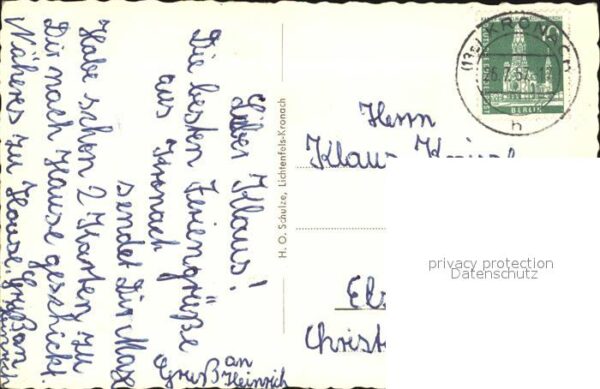 Lieber Klaus!
Die besten Feriengrüße
aus Kronach
sendet Dir Max
Habe schon 2 Karten zu
Dir nach Hause geschickt.
Näheres zu Hause. Gruß an
Heinrich
Gruß an
Heinrich
H. O. Schulze, Lichtenfels-Kronach
(13a) KRONACH
h
BERLIN
Herrn
Klaus
Christ
privacy protection
Datenschutz